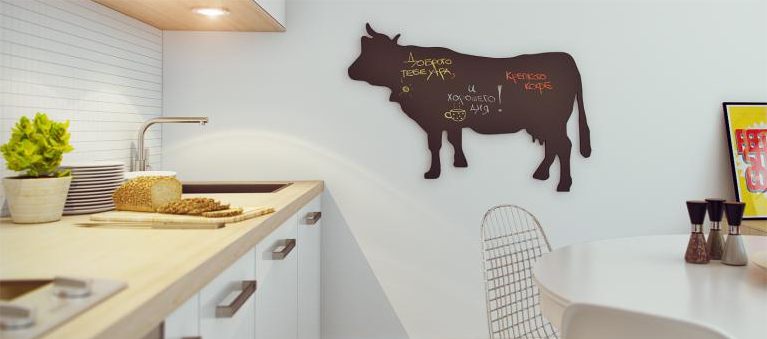 Доброго
тебе утра,
и
хорошего
дня!
крепкого
кофе